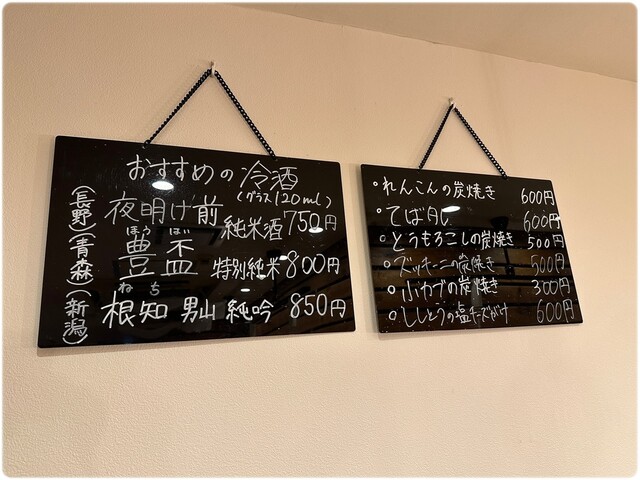 おすすめの冷酒
(グラス120ml)
(長野)夜明け前 純米酒 750円
ほう はい
(青森)豊盃 特別純米 800円
ねち
(新潟)根知 男山 純吟 850円
○れんこんの炭焼き 600円
○てば 600円
○とうもろこしの炭焼き 500円
○ズッキーニの炭焼き 500円
○小カブの炭焼き 300円
○ししとうの塩チーズがけ 600円